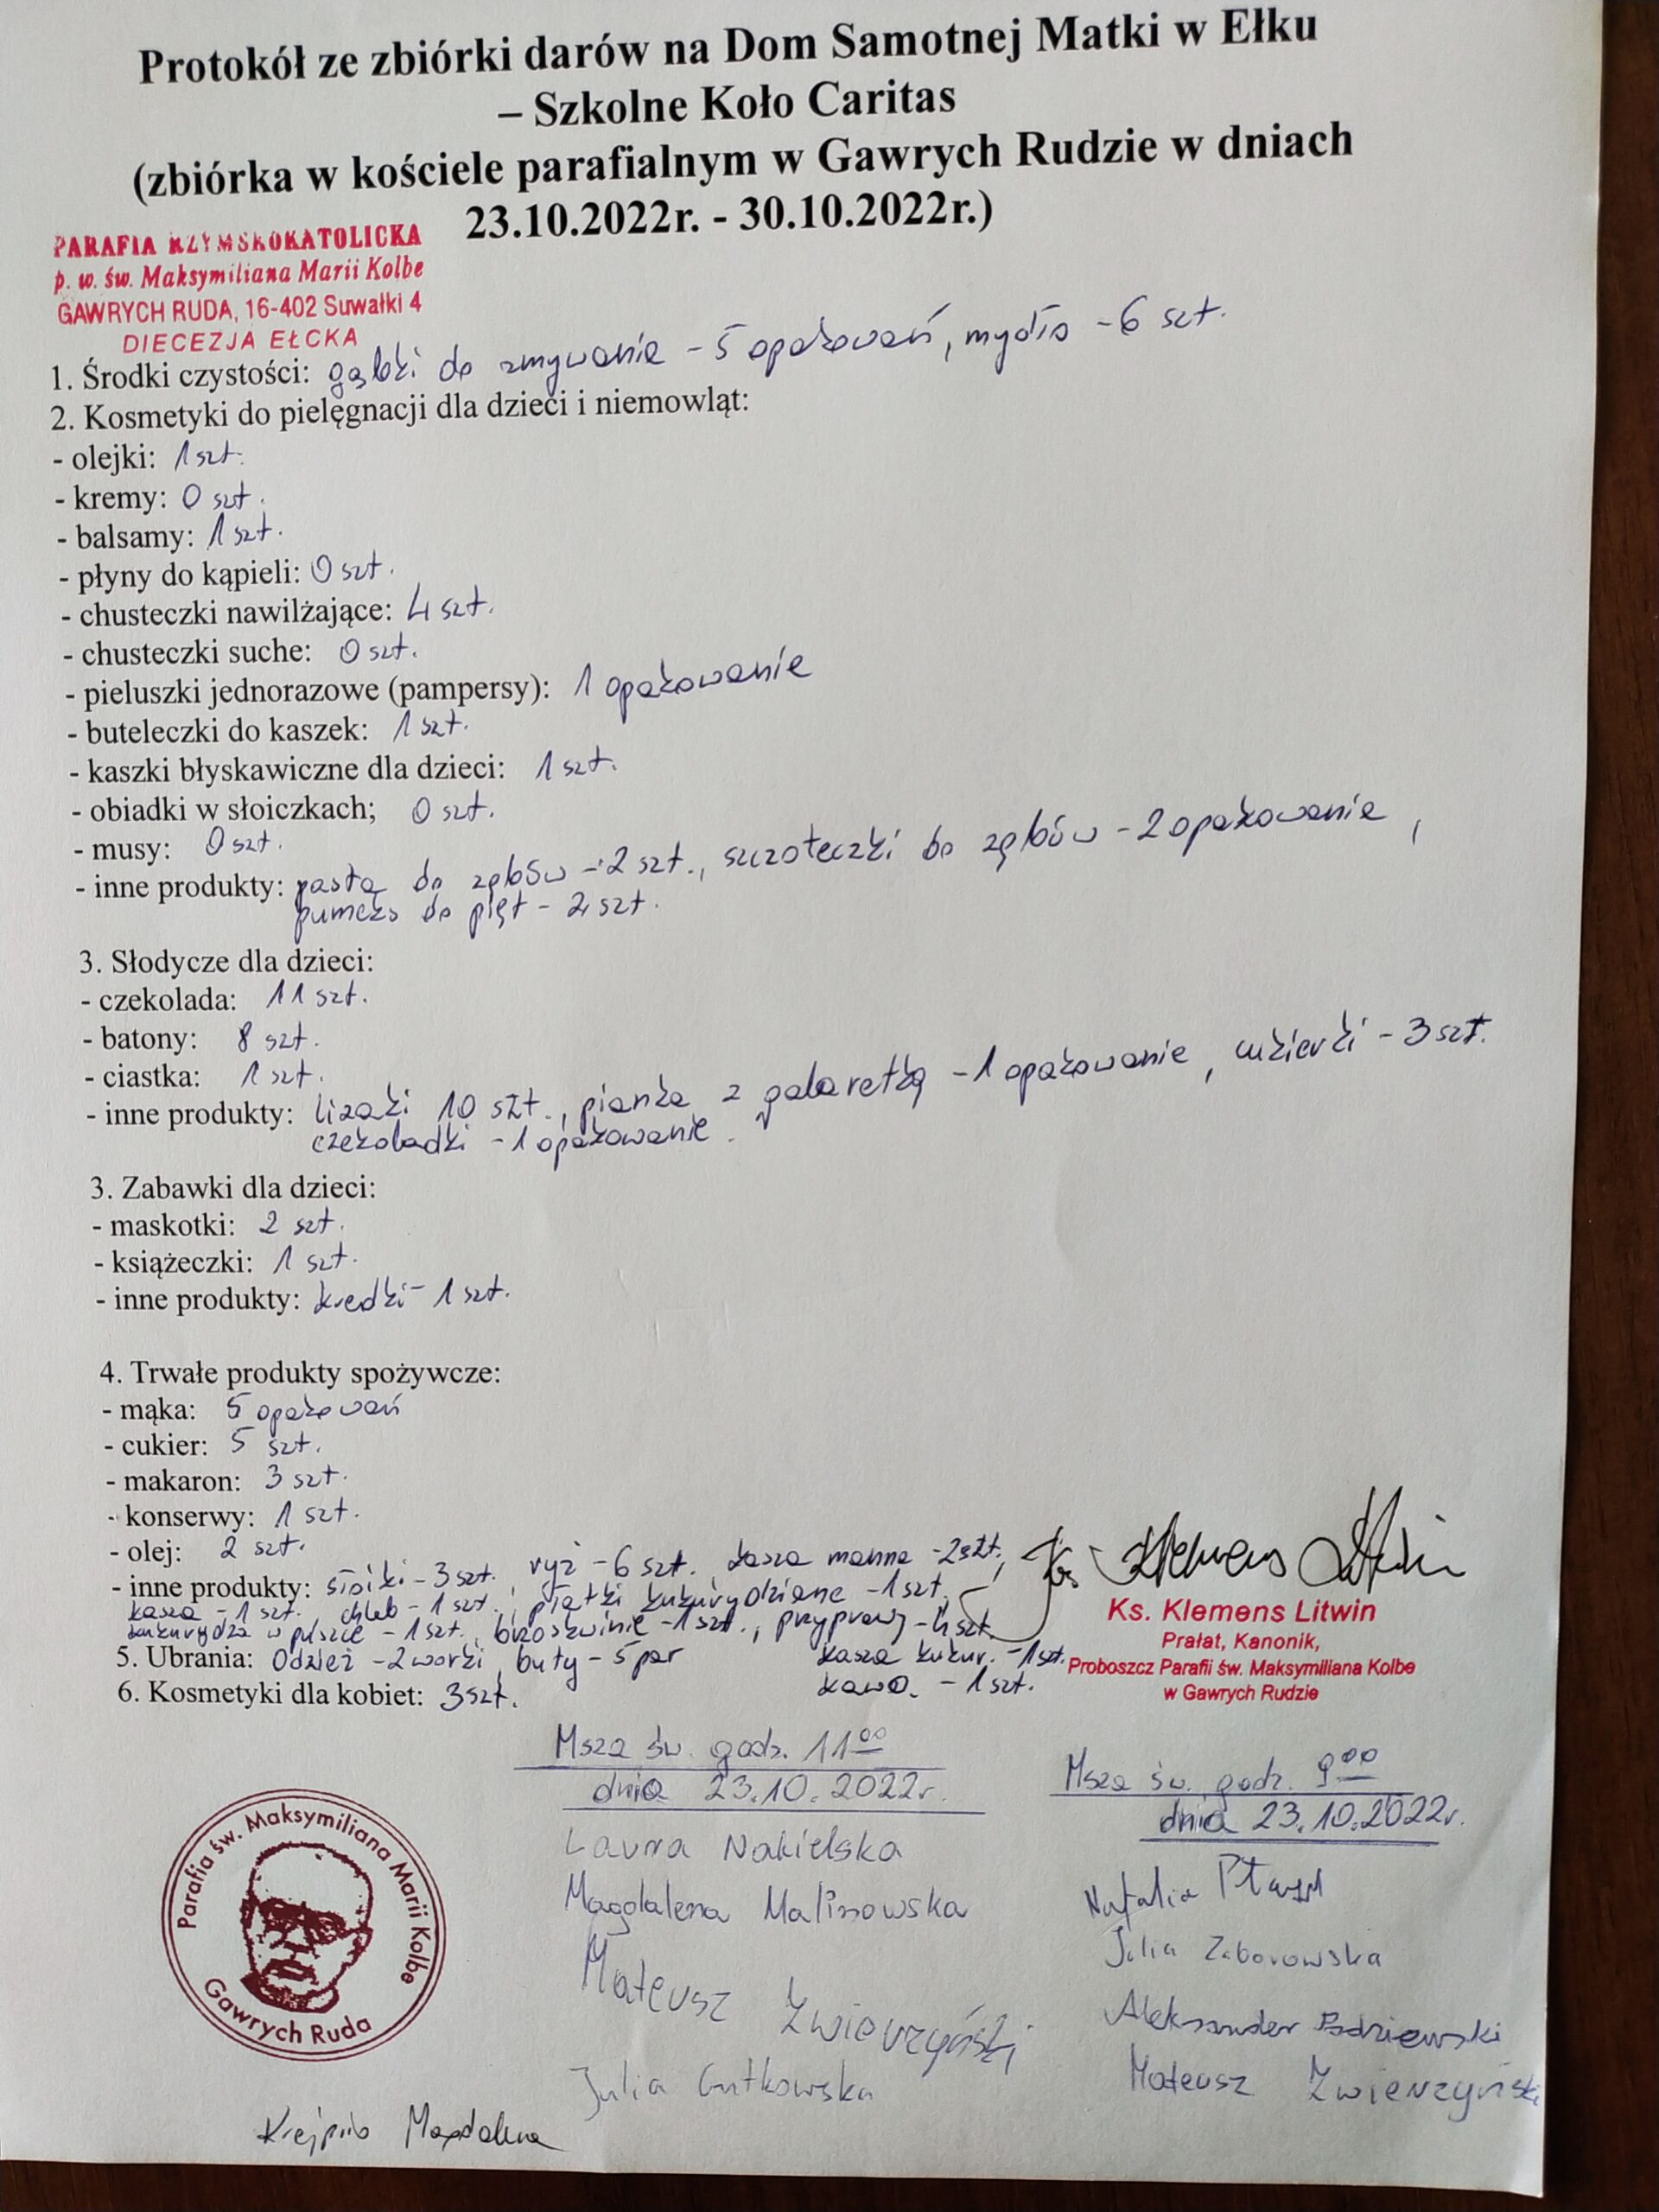 Protokół ze zbiórki darów na Dom Samotnej Matki w Ełku
– Szkolne Koło Caritas
(zbiórka w kościele parafialnym w Gawrych Rudzie w dniach
23.10.2022r. - 30.10.2022r.)
PARAFIA RZYMSKOKATOLICKA
p. w. św. Maksymiliana Marii Kolbe
GAWRYCH RUDA, 16-402 Suwałki 4
DIECEZJA EŁCKA
1. Środki czystości: gąbki do zmywania - 5 opakowań, mydło - 6 szt.
2. Kosmetyki do pielęgnacji dla dzieci i niemowląt:
- olejki: 1 szt.
- kremy: 0 szt.
- balsamy: 1 szt.
- płyny do kąpieli: 0 szt.
- chusteczki nawilżające: 4 szt.
- chusteczki suche: 0 szt.
- pieluszki jednorazowe (pampersy): 1 opakowanie
- buteleczki do kaszek: 1 szt.
- kaszki błyskawiczne dla dzieci: 1 szt.
- obiadki w słoiczkach; 0 szt.
- musy: 0 szt.
- inne produkty: pasta do zębów - 2 szt., szczoteczki do zębów - 2 opakowania,
pumeks do pięt - 2 szt.
3. Słodycze dla dzieci:
- czekolada: 11 szt.
- batony: 8 szt.
- ciastka: 1 szt.
- inne produkty: lizaki 10 szt., pianka z galaretką - 1 opakowanie, cukierki - 3 szt.
czekoladki - 1 opakowanie.
3. Zabawki dla dzieci:
- maskotki: 2 szt.
- książeczki: 1 szt.
- inne produkty: kredki - 1 szt.
4. Trwałe produkty spożywcze:
- mąka: 5 opakowań
- cukier: 5 szt.
- makaron: 3 szt.
- konserwy: 1 szt.
- olej: 2 szt.
- inne produkty: słoiki - 3 szt., ryż - 6 szt., kasza manna - 2 szt.,
kasza - 1 szt., chleb - 1 szt., płatki kukurydziane - 1 szt,
kukurydza w puszce - 1 szt., brzoskwinie - 1 szt., przyprawy - 4 szt.
5. Ubrania: Odzież - 2 worki, buty - 5 par
kasza kukur. - 1 szt.
6. Kosmetyki dla kobiet: 3 szt.
kawa - 1 szt.
Ks. Klemens Litwin
Ks. Klemens Litwin
Prałat, Kanonik,
Proboszcz Parafii św. Maksymiliana Kolbe
w Gawrych Rudzie
Msza św. godz. 11 00
dnia 23.10.2022r.
Laura Nakielska
Magdalena Malinowska
Mateusz Zwierzyński
Julia Gutkowska
Msza św. godz. 9 00
dnia 23.10.2022r.
Natalia
Julia Zaborowska
Aleksander
Mateusz Zwierzyński
Parafia św. Maksymiliana Marii Kolbe
Gawrych Ruda
Magdalena